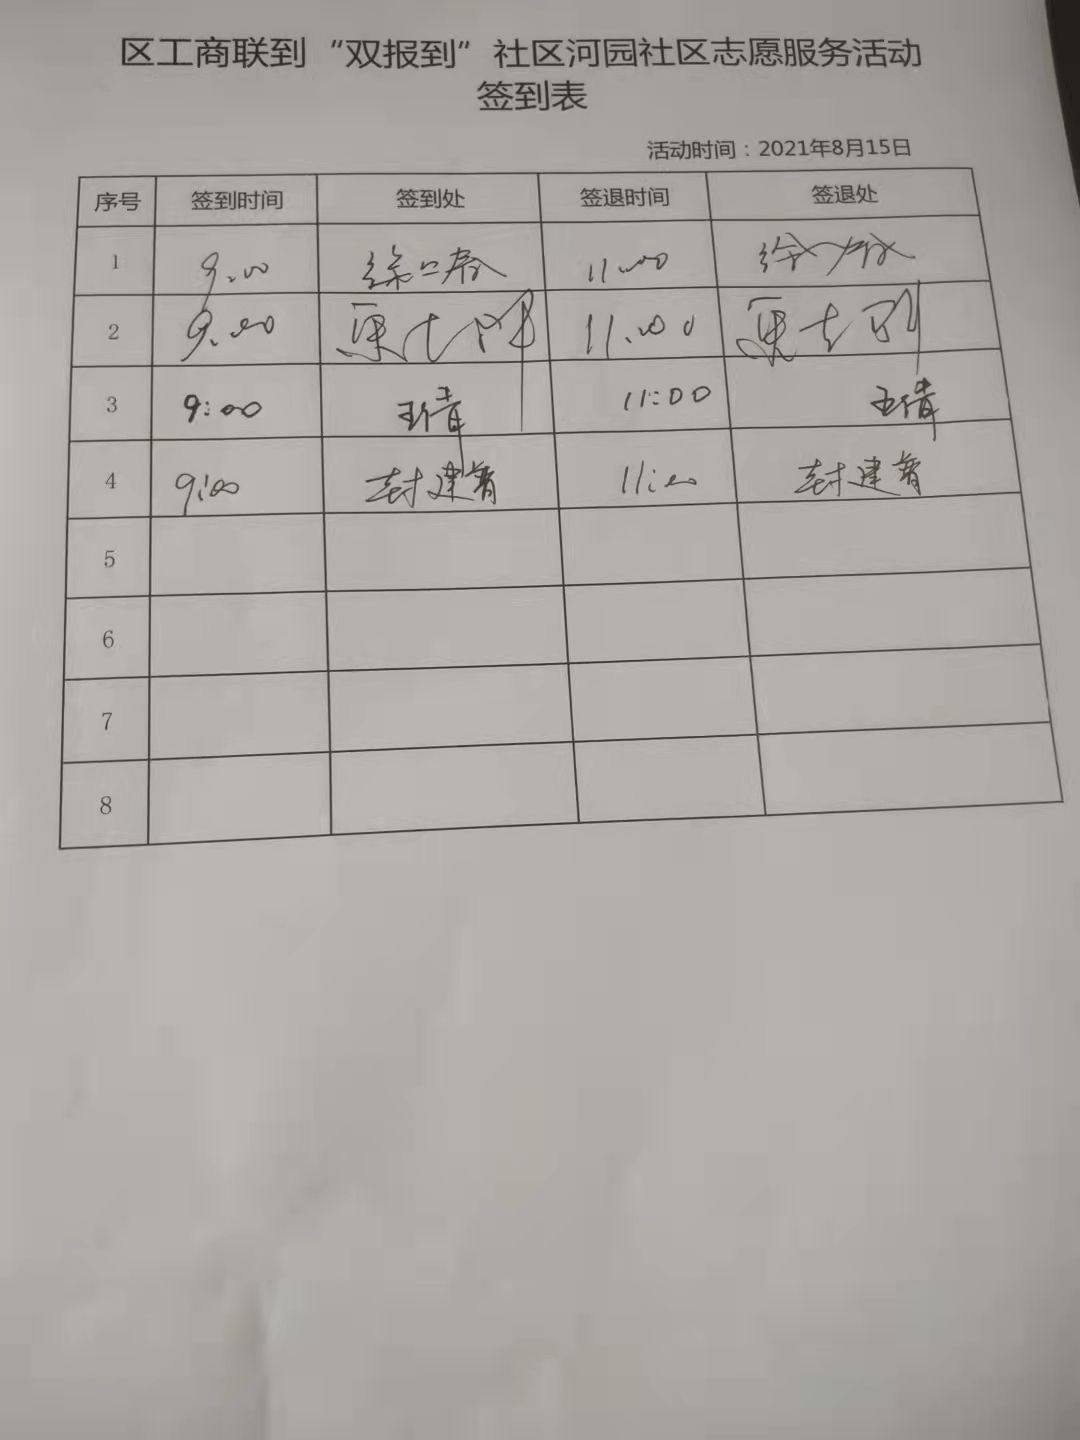 区工商联到“双报到”社区河园社区志愿服务活动
签到表
活动时间：2021年8月15日
序号 签到时间 签到处 签退时间 签退处
1 9:00 11:00
2 9:00 11:00
3 9:00 王倩 11:00 王倩
4 9:00 封建 11:00 封建
5
6
7
8